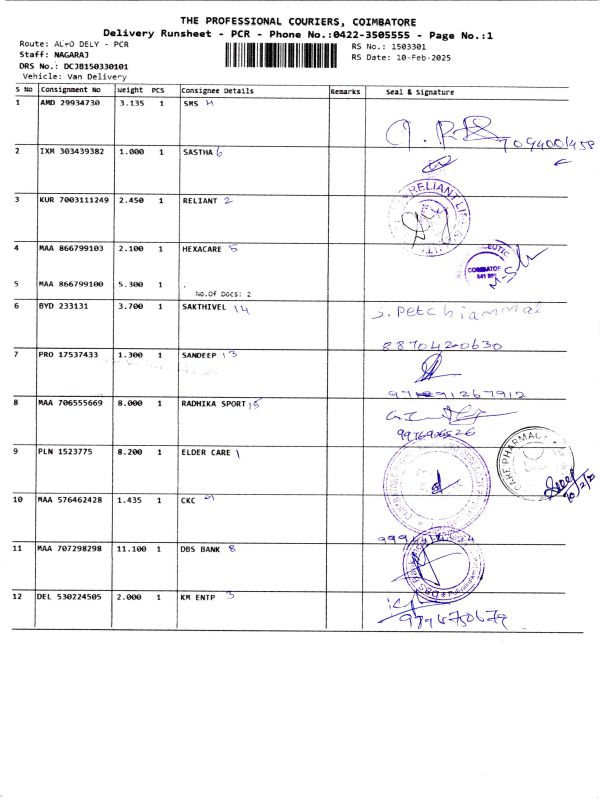 THE PROFESSIONAL COURIERS, COIMBATORE
Delivery Runsheet - PCR - Phone No.:0422-3505555 - Page No.:1
Route: AUTO DELY - PCR
RS No.: 1503301
Staff: NAGARAJ
RS Date: 10-Feb-2025
DRS No.: DCJB150330101
Vehicle: Van Delivery
S No Consignment No Weight PCS Consignee Details Remarks Seal & Signature
1 AMD 29934730 3.135 1 SMS
2 IXM 303439382 1.000 1 SASTHA 6
3 KUR 7003111249 2.450 1 RELIANT 2
RELIANT
4 MAA 866799103 2.100 1 HEXACARE 5
5 MAA 866799100 5.300 1 .
No.Of Docs: 2
6 BYD 233131 3.700 1 SAKTHIVEL 14
S. Petchiammal
8870420630
7 PRO 17537433 1.300 1 SANDEEP 13
8 MAA 706555669 8.000 1 RADHIKA SPORT 15
9 PLN 1523775 8.200 1 ELDER CARE 1
10 MAA 576462428 1.435 1 CKC
11 MAA 707298298 11.100 1 DBS BANK 8
DBS
12 DEL 530224505 2.000 1 KM ENTP 3